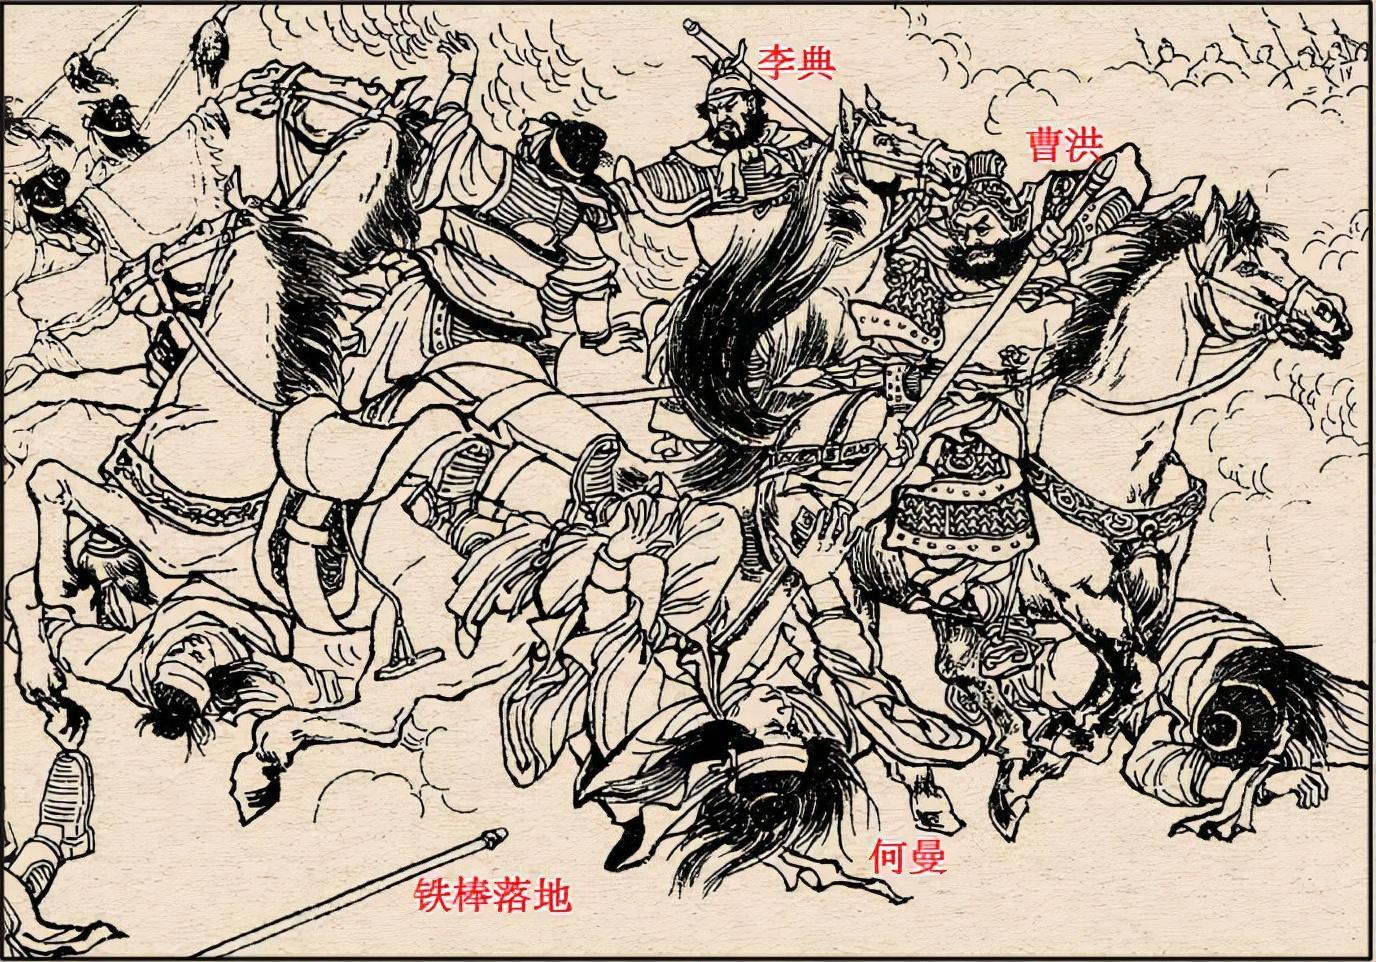 李典
曹洪
何曼
铁棒落地